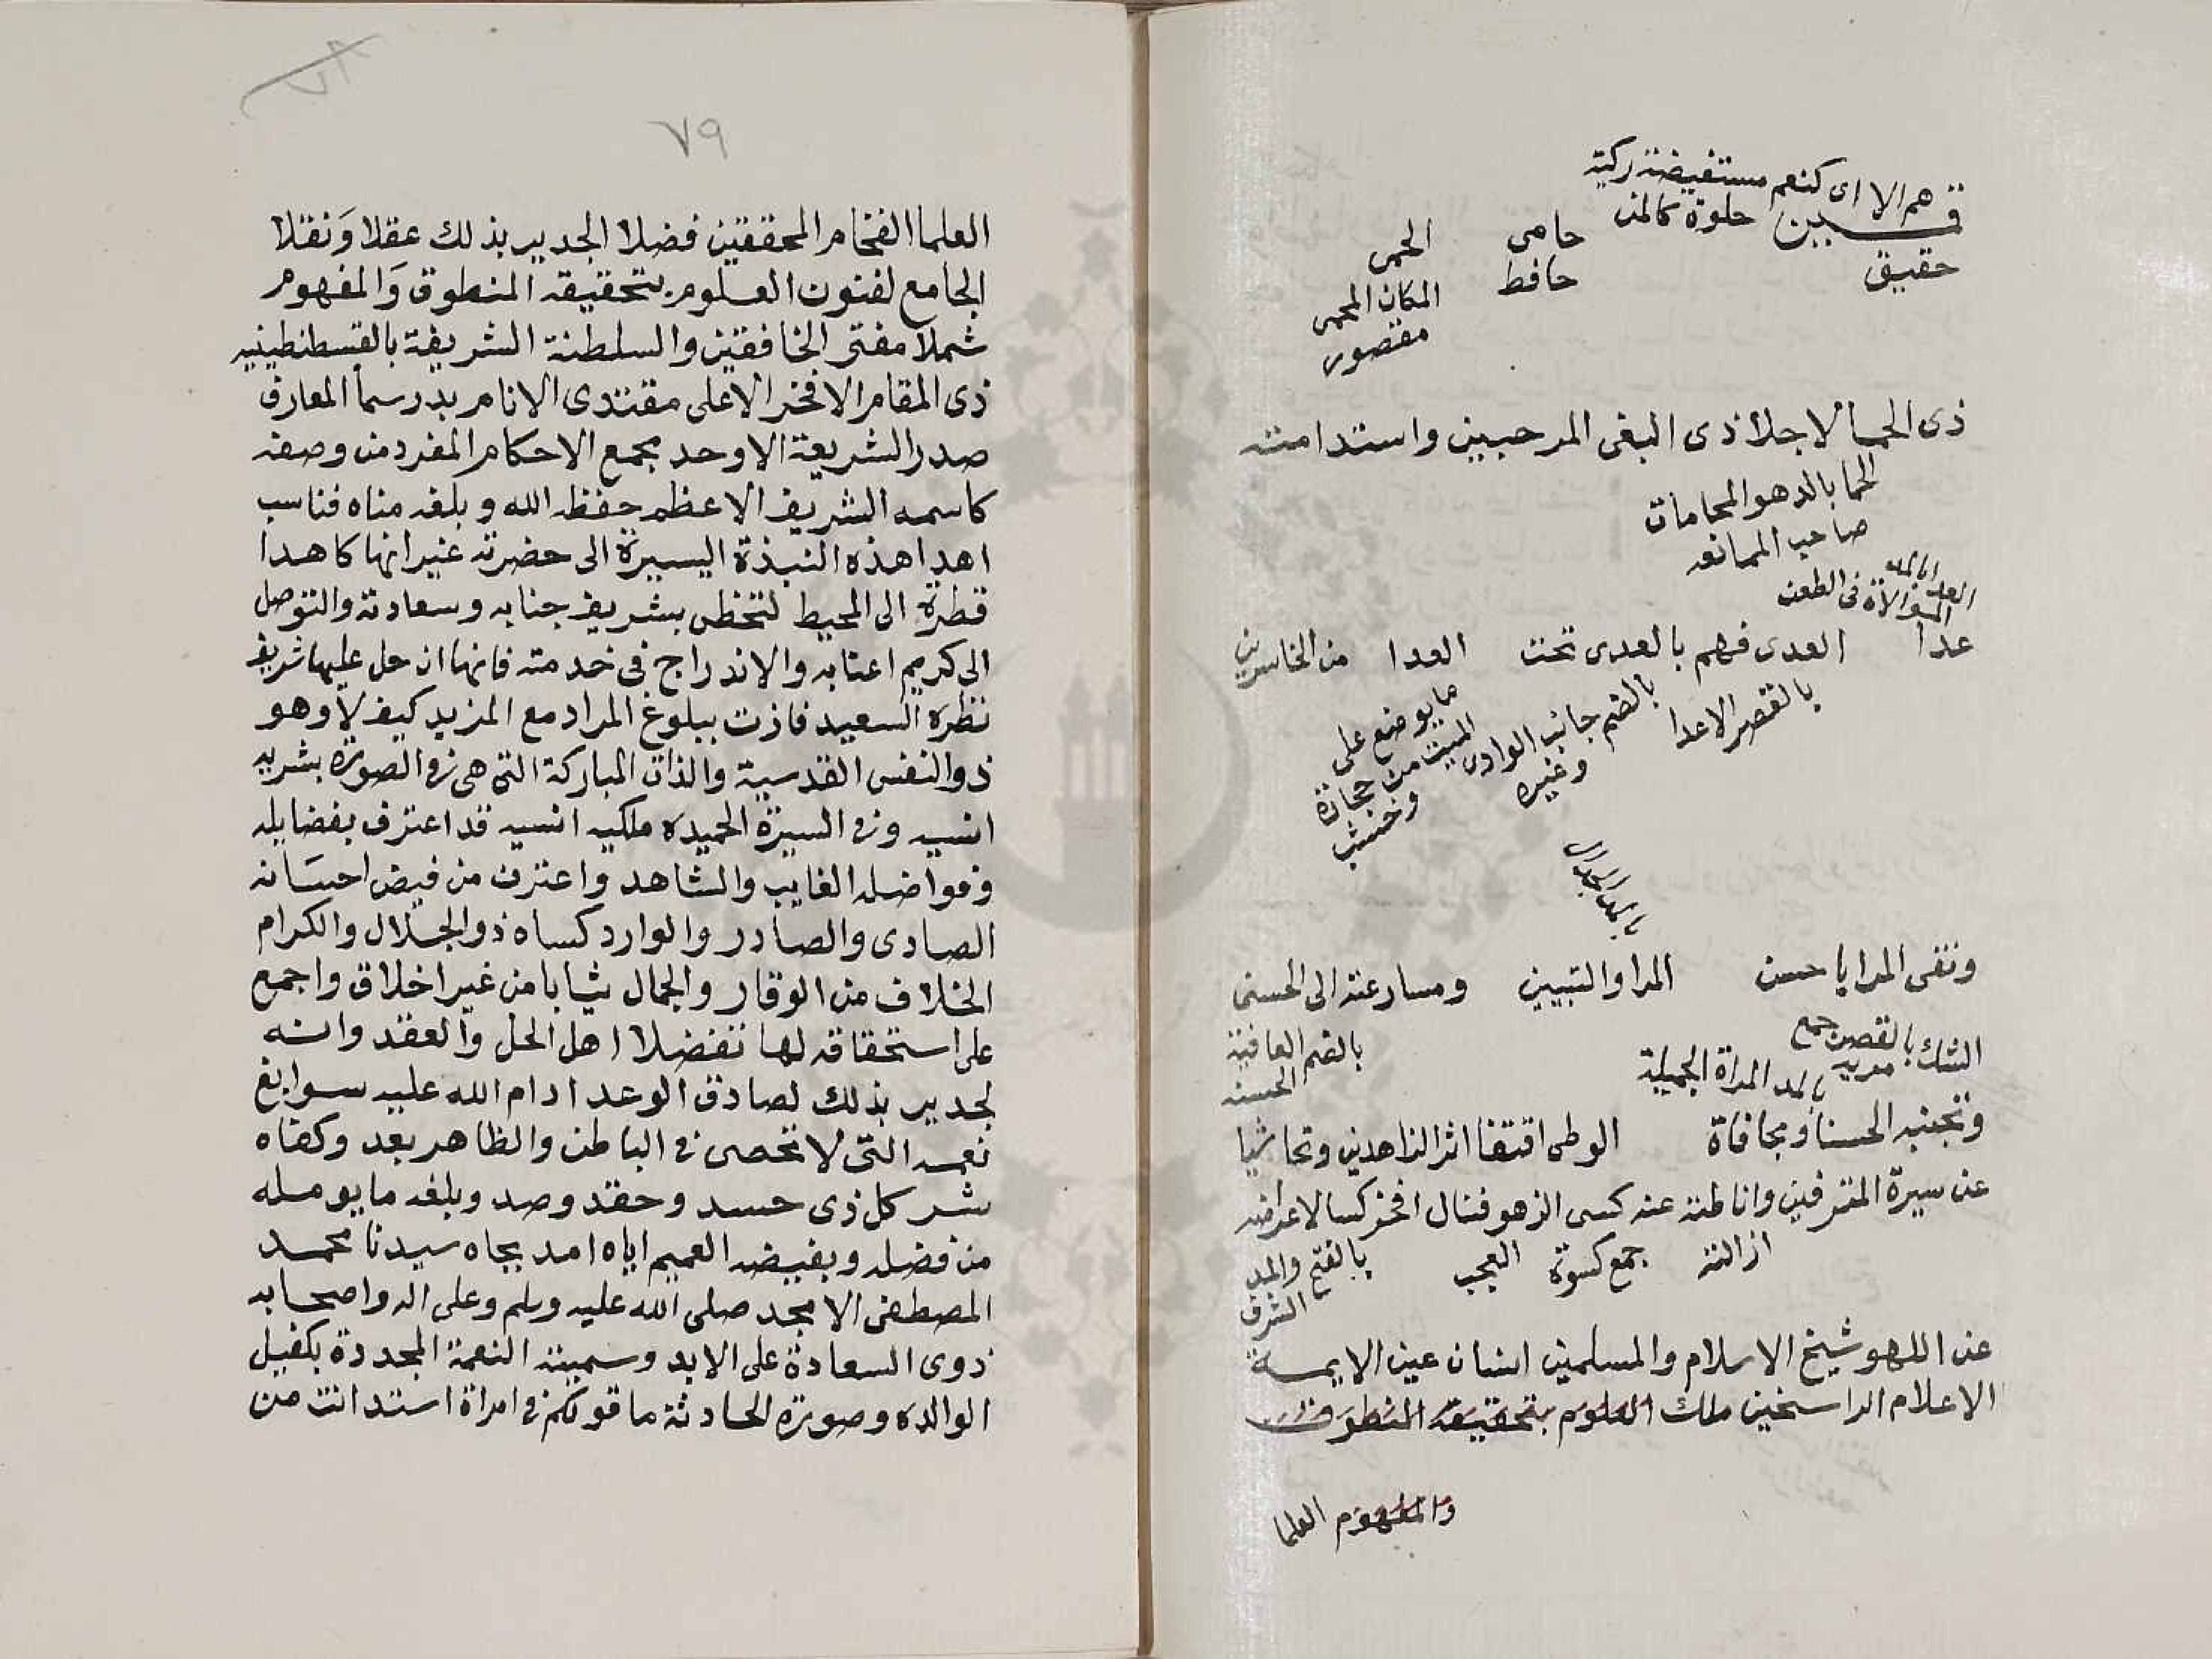 هم الا اى كنعم مستفيضة ركية
قمـيين حلوة كالمن حامى الحمى
حقيق حافظ المكان المحمى
مقصور
ذى الحما لاجلا ذى البغى المرحبين واستدامته
الحما بالد هو المحامات
صاحب الممانعه
الموالاة فى الطعن
عدا العدى فهم بالعدى تحت العدا من الخاسرين
بالقصر الاعدا بالضم جانب الوادى وغيره ما يوضع على الميت من حجارة وخشب
ونفى المرا يا حسن المرا والتبيين ومسارعته الى الحسنى
الشك بالقصر جمع بالمد المراة الجميلة بالضم العافية الحسنه
وتجنبه الحسنا ومجافاة الوطى اقتفا اثر الزاهدين وتحاشيا
عن سيرة المترفين واناطته عنه كسى الزهو فنال افخر كسا لاعراضه
ازالته جمع كسوة العجب بالفتح والمد الشرف
عن اللهو شيخ الاسلام والمسلمين انسان عين الايمـة
الاعلام الراسخين ملك العلوم بتحقيقه المنطوق
والمفهوم العلما
٧٩
العلما الفخام المحققين فضلا الجدير بذلك عقلا وَنقلا
الجامع لفنون العلوم بتحقيقه المنطوق وَالمفهوم
شملا مفتى الخافقين والسلطنة الشريفة بالقسطنطينيه
ذى المقام الافخر الاعلى مقتدى الانام بدر سما المعارف
صدر الشريعة الاوحد مجمع الاحكام المفرد من وصفه
كاسمه الشريف الاعظم حفظه الله وبلغه مناه فناسب
اهدا هذه النبذة اليسيرة الى حضرته غير انها كاهدا
قطرة الى المحيط لتحظى بشريف جنابه وسعادته والتوصل
الى كريم اعتابه والاندراج فى خدمته فانها ان حل عليها شريف
نظره السعيد فازت ببلوغ المراد مع المزيد كيف لا وهو
ذو النفس القدسية والذات المباركة التى هى فى الصورة بشريه
انسيه وفى السيرة الحميده ملكيه انسيه قد اعترف بفضايله
وفواضله الغايب والشاهد واعترف من فيض احسَانه
الصادى والصادر والوارد كساه ذو الجلال والكرام
الخلاف من الوقار والجمال ثيابا من غير اخلاق واجمع
على استحقاقه لها تفضلا اهل الحل والعقد وانـه
لجدير بذلك لصادق الوعد ادام الله عليه سوابغ
نعمه التى لا تحصى فى الباطن والظاهر بعد وكفاه
شر كل ذى حسد وحقد وصد وبلغه ما يومله
من فضله وبفيضه العميم اياه امد بجاه سيدنا محمد
المصطفى الامجد صلى الله عليه وسلم وعلى اله واصحابه
ذوى السعادة على الابد وسميته النعمة المجددة بكفيل
الوالده وصورة الحادثة ما قولكم فى امراة استدانت من